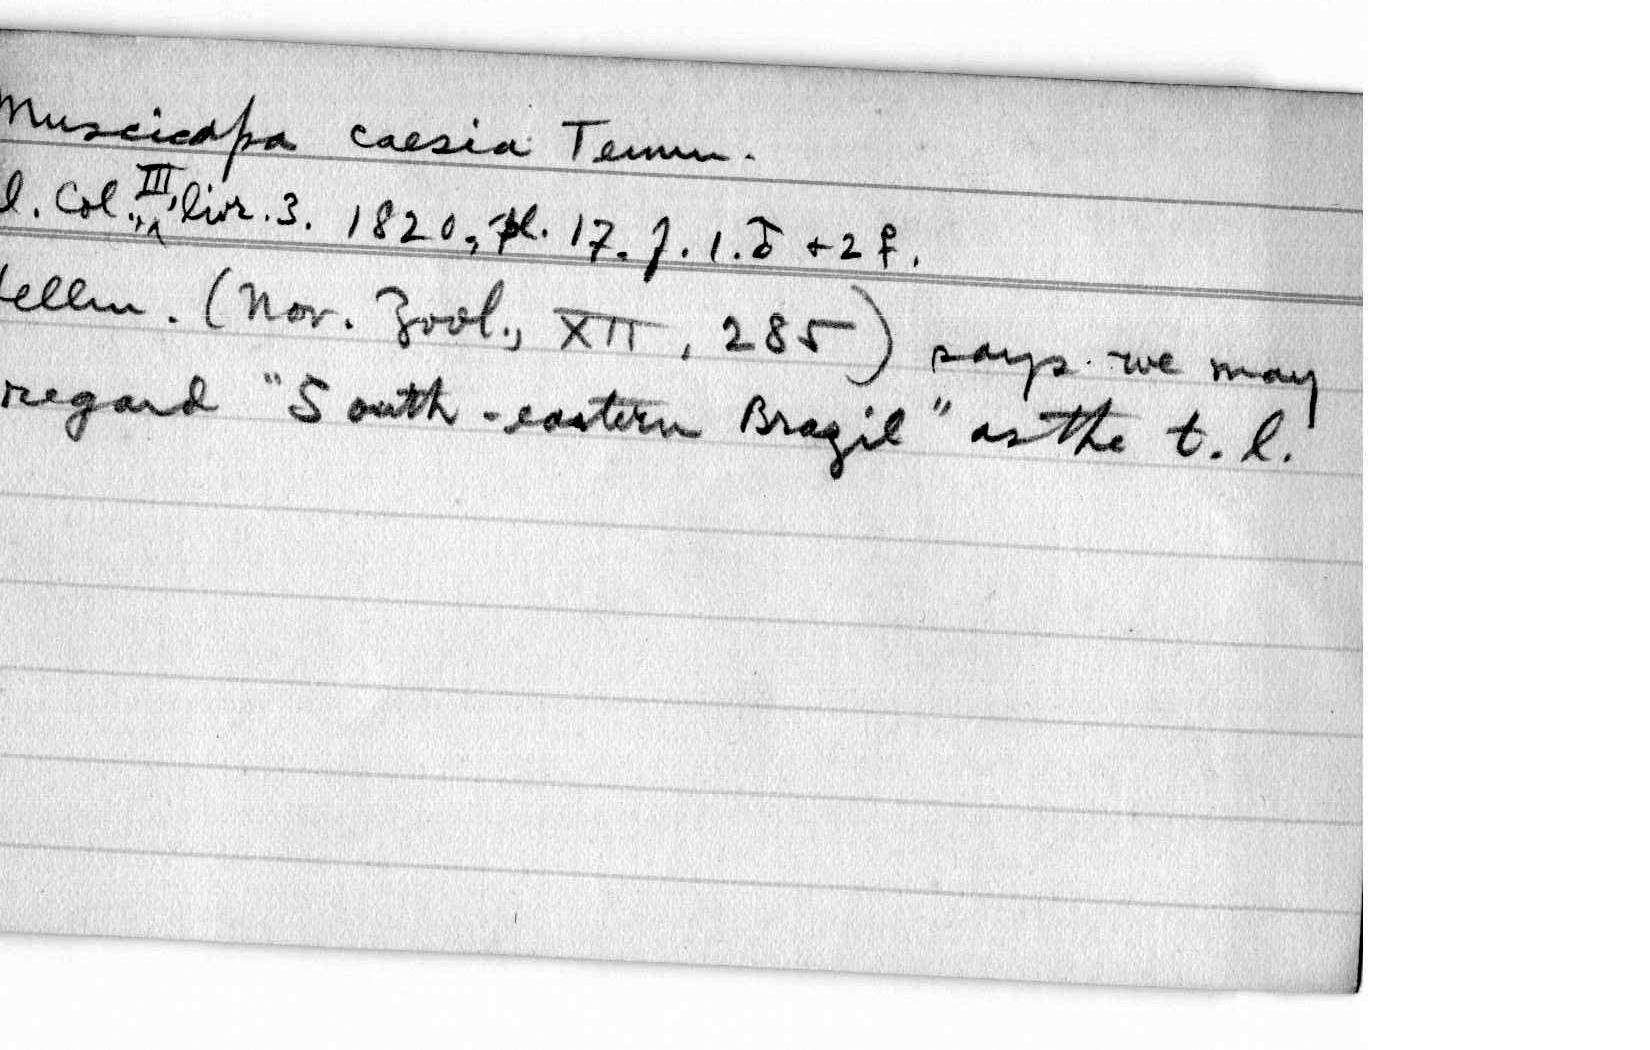 Muscicapa caesia Temm.
l. Col., III, livr. 3. 1820, pl. 17. f. 1. ♂ + 2 ♀.
Hellm. (Nov. Zool., XII, 285) says we may
regard "South-eastern Brazil" as the t. l.